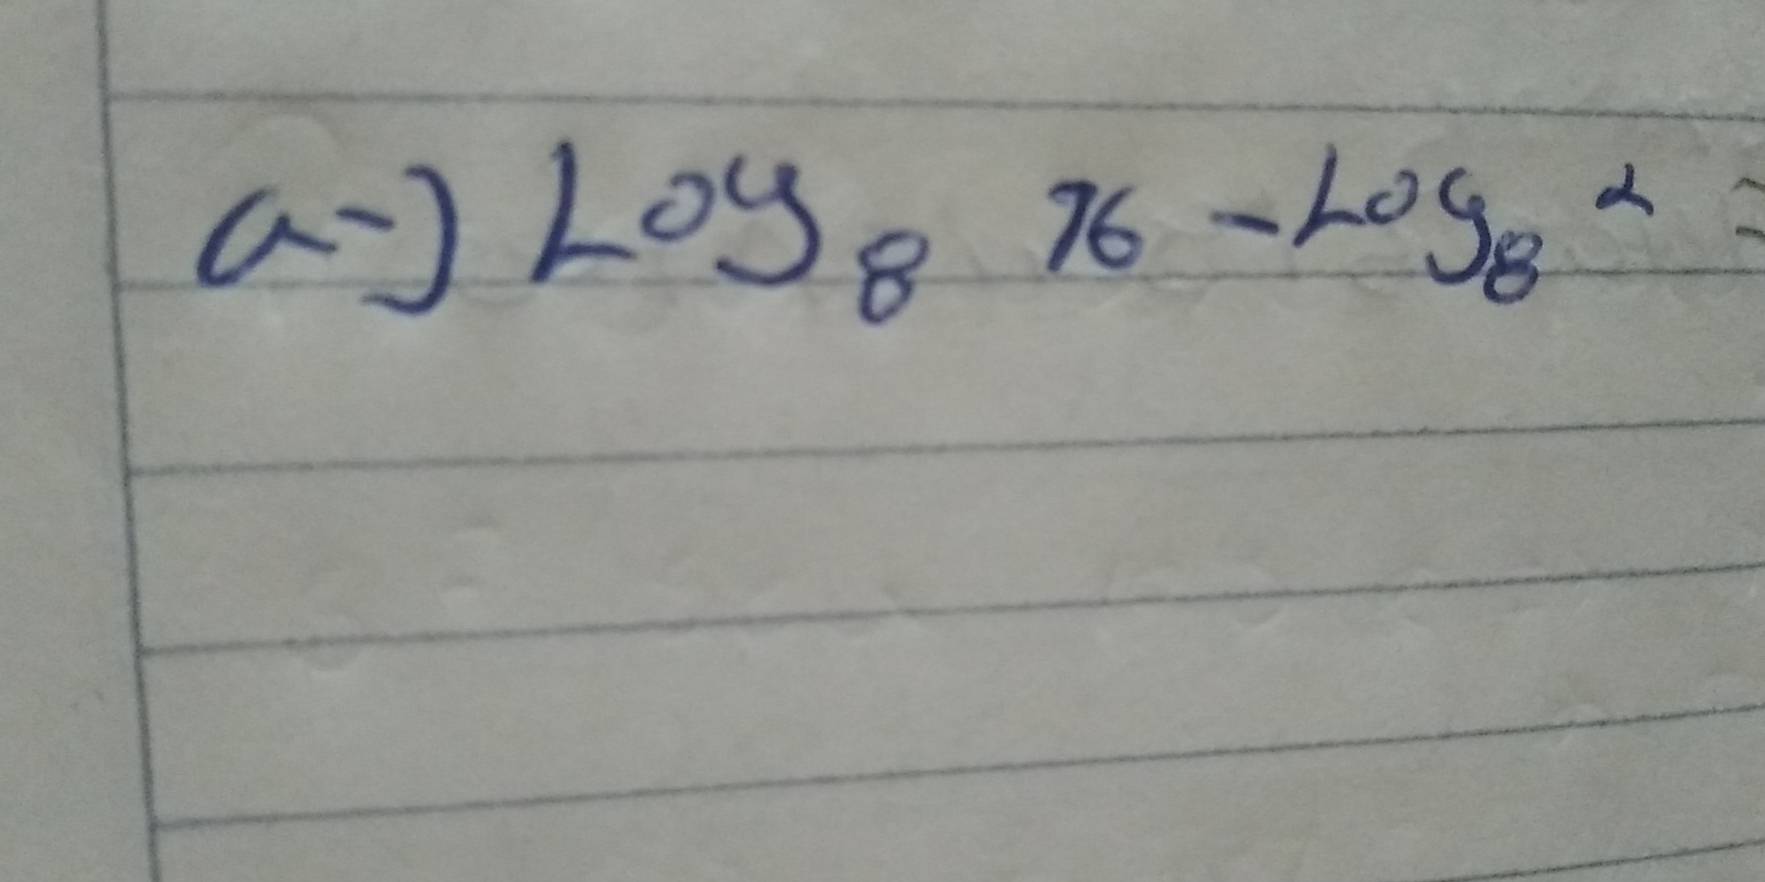 a-) Log₈ 16 - Log₈ 2 =